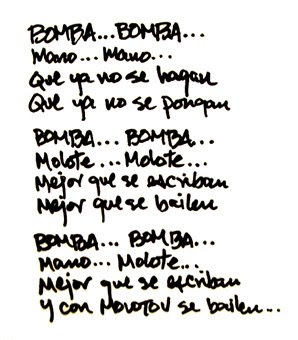 BOMBA... BOMBA...
Mano... Mano...
Que ya no se hagan
Que ya no se pongan
BOMBA... BOMBA...
Molote... Molote...
Mejor que se escriban
Mejor que se bailen
BOMBA... BOMBA...
Mano... Molote...
Mejor que se escriban
Y con MOLOTOV se bailen...